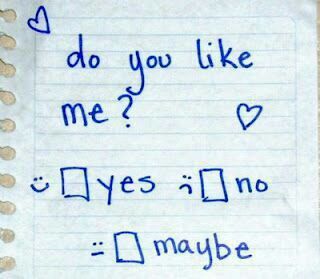 do you like
me?
:) yes ;( no
:| maybe